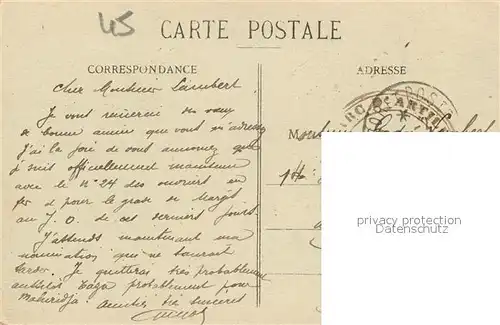 45
CARTE POSTALE
CORRESPONDANCE
ADRESSE
Cher Monsieur Lambert
Je vous remercie des vœux
de bonne année que vous m'adressez
J'ai la joie de vous annoncer que
je suis officiellement maintenu
avec le N° 24 des ouvriers en
fer d pour le grade de Margis
au J.O. de ces derniers jours.
J'attends maintenant ma
nomination qui ne saurait
tarder. Je quitterai très probablement
Taza probablement pour
Mahiridja. Amitiés bien sincères
PARC D'ART
POSTE
privacy protection
Datenschutz